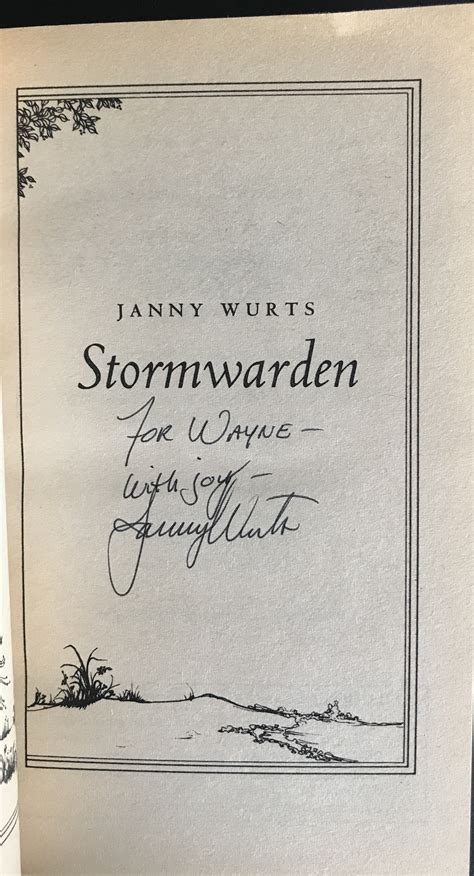 JANNY WURTS
Stormwarden
FOR WAYNE –
with joy –
Janny Wurts